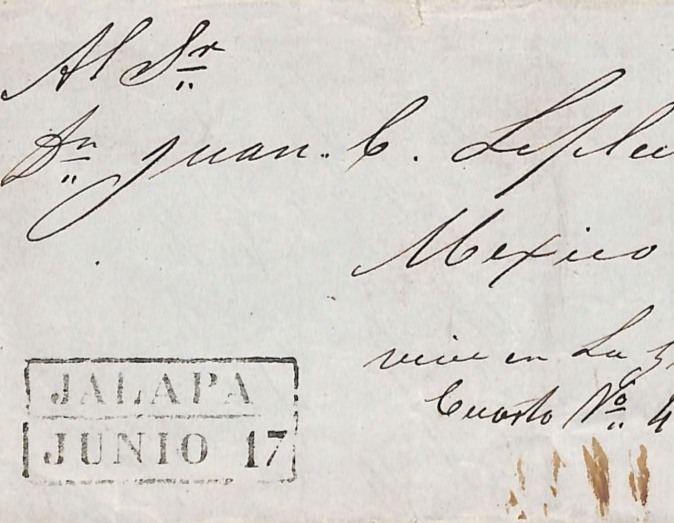 Al Sr
Dn Juan. C.
Mexico
vive en La
Cuarto No 4
JALAPA
JUNIO 17